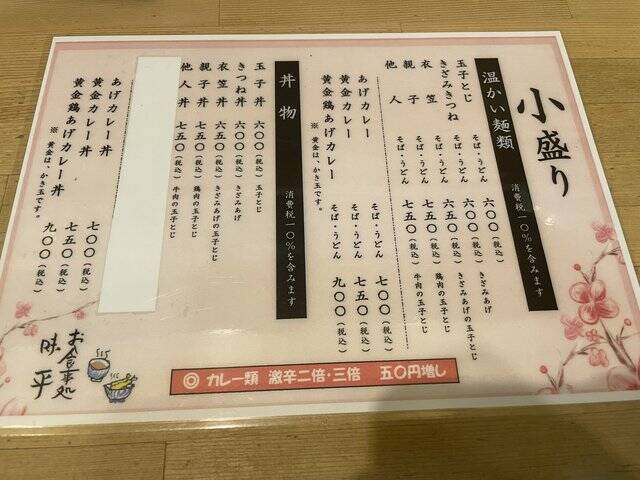 小盛り
温かい麺類 消費税一〇%を含みます
玉子とじ そば・うどん 六〇〇(税込)
きざみきつね そば・うどん 六〇〇(税込) きざみあげ
衣笠 そば・うどん 六五〇(税込) きざみあげの玉子とじ
親子 そば・うどん 七五〇(税込) 鶏肉の玉子とじ
他人 そば・うどん 七五〇(税込) 牛肉の玉子とじ
あげカレー そば・うどん 七〇〇(税込)
黄金カレー そば・うどん 七五〇(税込)
黄金鶏あげカレー そば・うどん 九〇〇(税込)
※ 黄金は、かき玉です。
丼物 消費税一〇%を含みます
玉子丼 六〇〇(税込) 玉子とじ
きつね丼 六〇〇(税込) きざみあげ
衣笠丼 六五〇(税込) きざみあげの玉子とじ
親子丼 七五〇(税込) 鶏肉の玉子とじ
他人丼 七五〇(税込) 牛肉の玉子とじ
あげカレー丼 七〇〇(税込)
黄金カレー丼 七五〇(税込)
黄金鶏あげカレー丼 九〇〇(税込)
※ 黄金は、かき玉です。
◎ カレー類 激辛二倍・三倍 五〇円増し
お食事処
味平